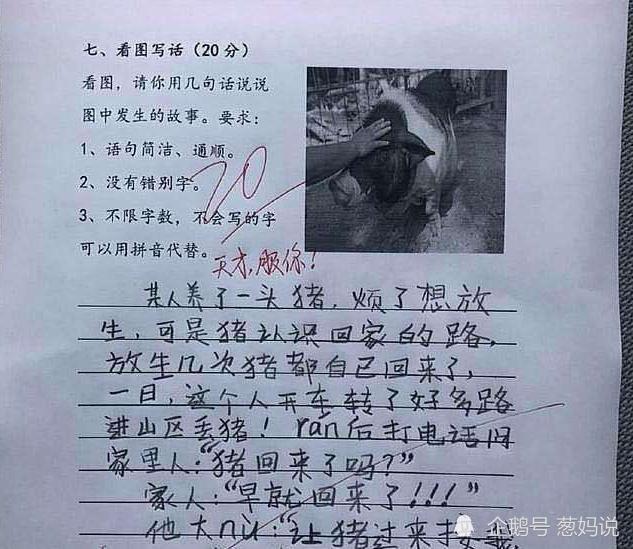 七、看图写话（20分）
看图，请你用几句话说说
图中发生的故事。要求：
1、语句简洁、通顺。
2、没有错别字。
3、不限字数，不会写的字
可以用拼音代替。
20
天才，服你！
某人养了一头猪，烦了想放
生，可是猪认识回家的路，
放生几次猪都自己回来了，
一日，这个人开车转了好多路
进山区丢猪！rán后打电话问
家里人："猪回来了吗？"
家人："早就回来了!!!"
他大nù："让猪过来接我
企鹅号 葱妈说